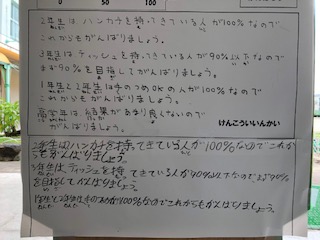 0 50 100
2年生は ハンカチを持ってきている人が100%なので
これからもがんばりましょう。
3年生は ティッシュを持ってきている人が90%以下なので
まず90%を目指してがんばりましょう。
1年生と2年生は手のつめOKの人が100%なので
これからもがんばりましょう。
高学年は、結果があまり良くないので
がんばりましょう。
けんこういいんかい
2年生は ハンカチを持ってきている人が100%なのでこれか
らもがんばりましょう。
3年生は、ティッシュを持ってきている人が90%以下なのでまず90%
を目指してがんばりましょう。
1年生と2年生は手のつめが100%なのでこれからもがんばりましょう。